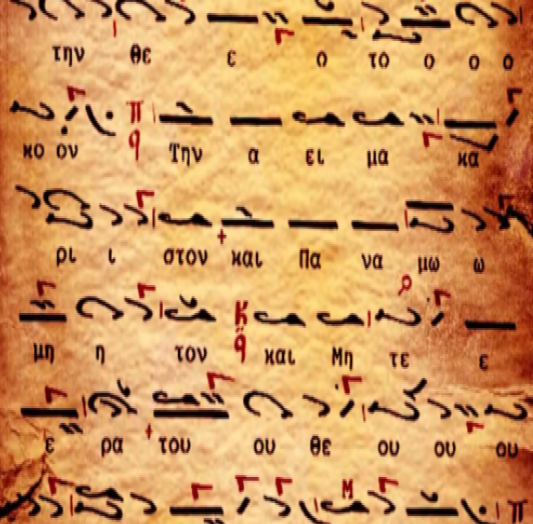 την θε ε ο το ο ο ο
κο ον Την α ει μα κα
ρι ι στον και Πα να μω ω
μη η τον και Μη τε ε
ε ρα του ου θε ου ου ου